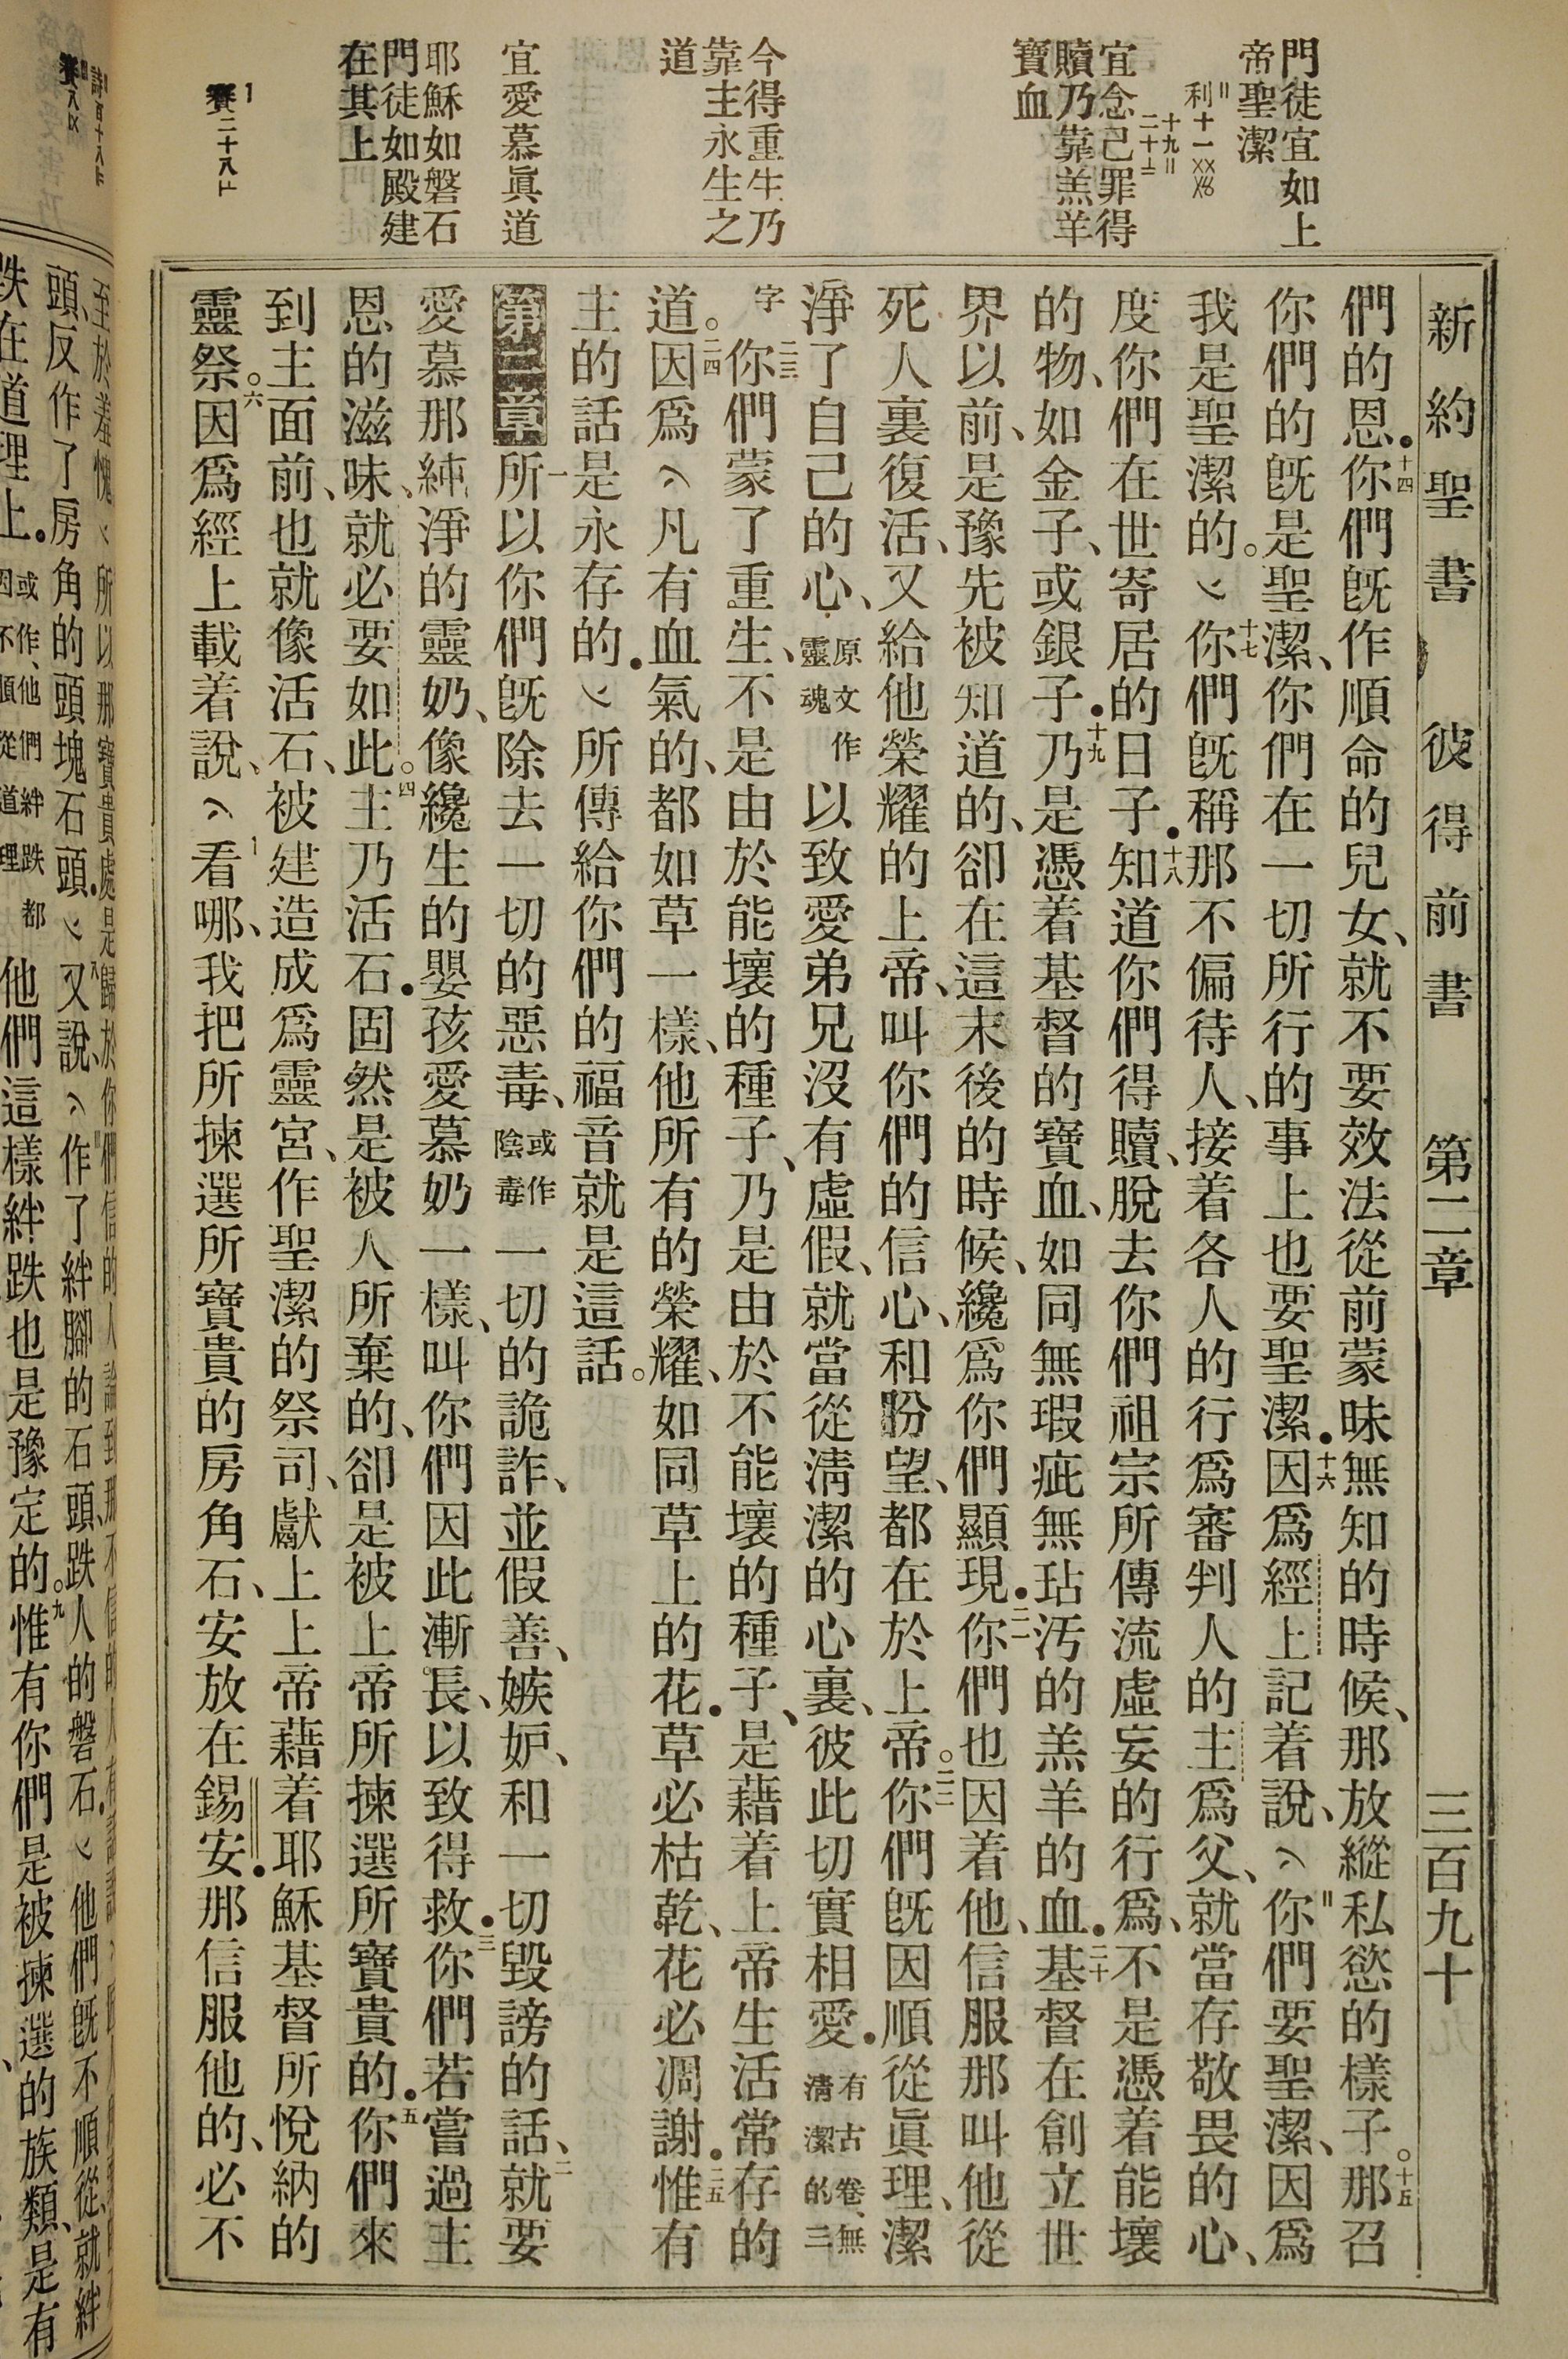 新約聖書 彼得前書 第二章 三百九十
門徒宜如上
帝聖潔
利十一〤〤〤〥
十九〢
二十〦
宜念己罪得
贖乃靠羔羊
寶血
今得重生乃
靠主永生之
道
宜愛慕眞道
耶穌如磐石
門徒如殿建
在其上
賽二十八〦
們的恩.十四你們旣作順命的兒女、就不要效法從前蒙昧無知的時候、那放縱私慾的樣子。十五那召
你們的旣是聖潔、你們在一切所行的事上也要聖潔.十六因爲經上記着說、你們要聖潔、因爲
我是聖潔的。十七你們旣稱那不偏待人、接着各人的行爲審判人的主爲父、就當存敬畏的心、
度你們在世寄居的日子.十八知道你們得贖、脫去你們祖宗所傳流虛妄的行爲、不是憑着能壞
的物、如金子、或銀子.十九乃是憑着基督的寶血、如同無瑕疵無玷汚的羔羊的血.二十基督在創立世
界以前、是豫先被知道的、卻在這末後的時候、纔爲你們顯現.二一你們也因着他、信服那叫他從
死人裏復活、又給他榮耀的上帝、叫你們的信心、和盼望、都在於上帝。二二你們旣因順從眞理、潔
淨了自己的心、原文作靈魂以致愛弟兄沒有虛假、就當從淸潔的心裏、彼此切實相愛.有古卷、無淸潔的二
字二三你們蒙了重生、不是由於能壞的種子、乃是由於不能壞的種子、是藉着上帝生活常存的
道。二四因爲凡有血氣的、都如草一樣、他所有的榮耀、如同草上的花.草必枯乾、花必凋謝.二五惟有
主的話是永存的.所傳給你們的福音就是這話。
第二章一所以你們旣除去一切的惡毒、或作陰毒一切的詭詐、並假善、嫉妒、和一切毀謗的話、二就要
愛慕那純淨的靈奶、像纔生的嬰孩愛慕奶一樣、叫你們因此漸長、以致得救.三你們若嘗過主
恩的滋味、就必要如此。四主乃活石.固然是被人所棄的、卻是被上帝所揀選所寶貴的.五你們來
到主面前、也就像活石、被建造成爲靈宮、作聖潔的祭司、獻上上帝藉着耶穌基督所悅納的
靈祭。六因爲經上載着說、看哪、我把所揀選所寶貴的房角石、安放在錫安.那信服他的、必不
至於羞愧所以那寶貴處是歸於你們信的人論到那不信的人有
頭、反作了房角的頭塊石頭.八又說、作了絆腳的石頭、跌人的磐石.他們旣不順從、就絆
跌在道理上.或作、他們絆跌都因不順從道理他們這樣絆跌也是豫定的。九惟有你們是被揀選的族類、是有